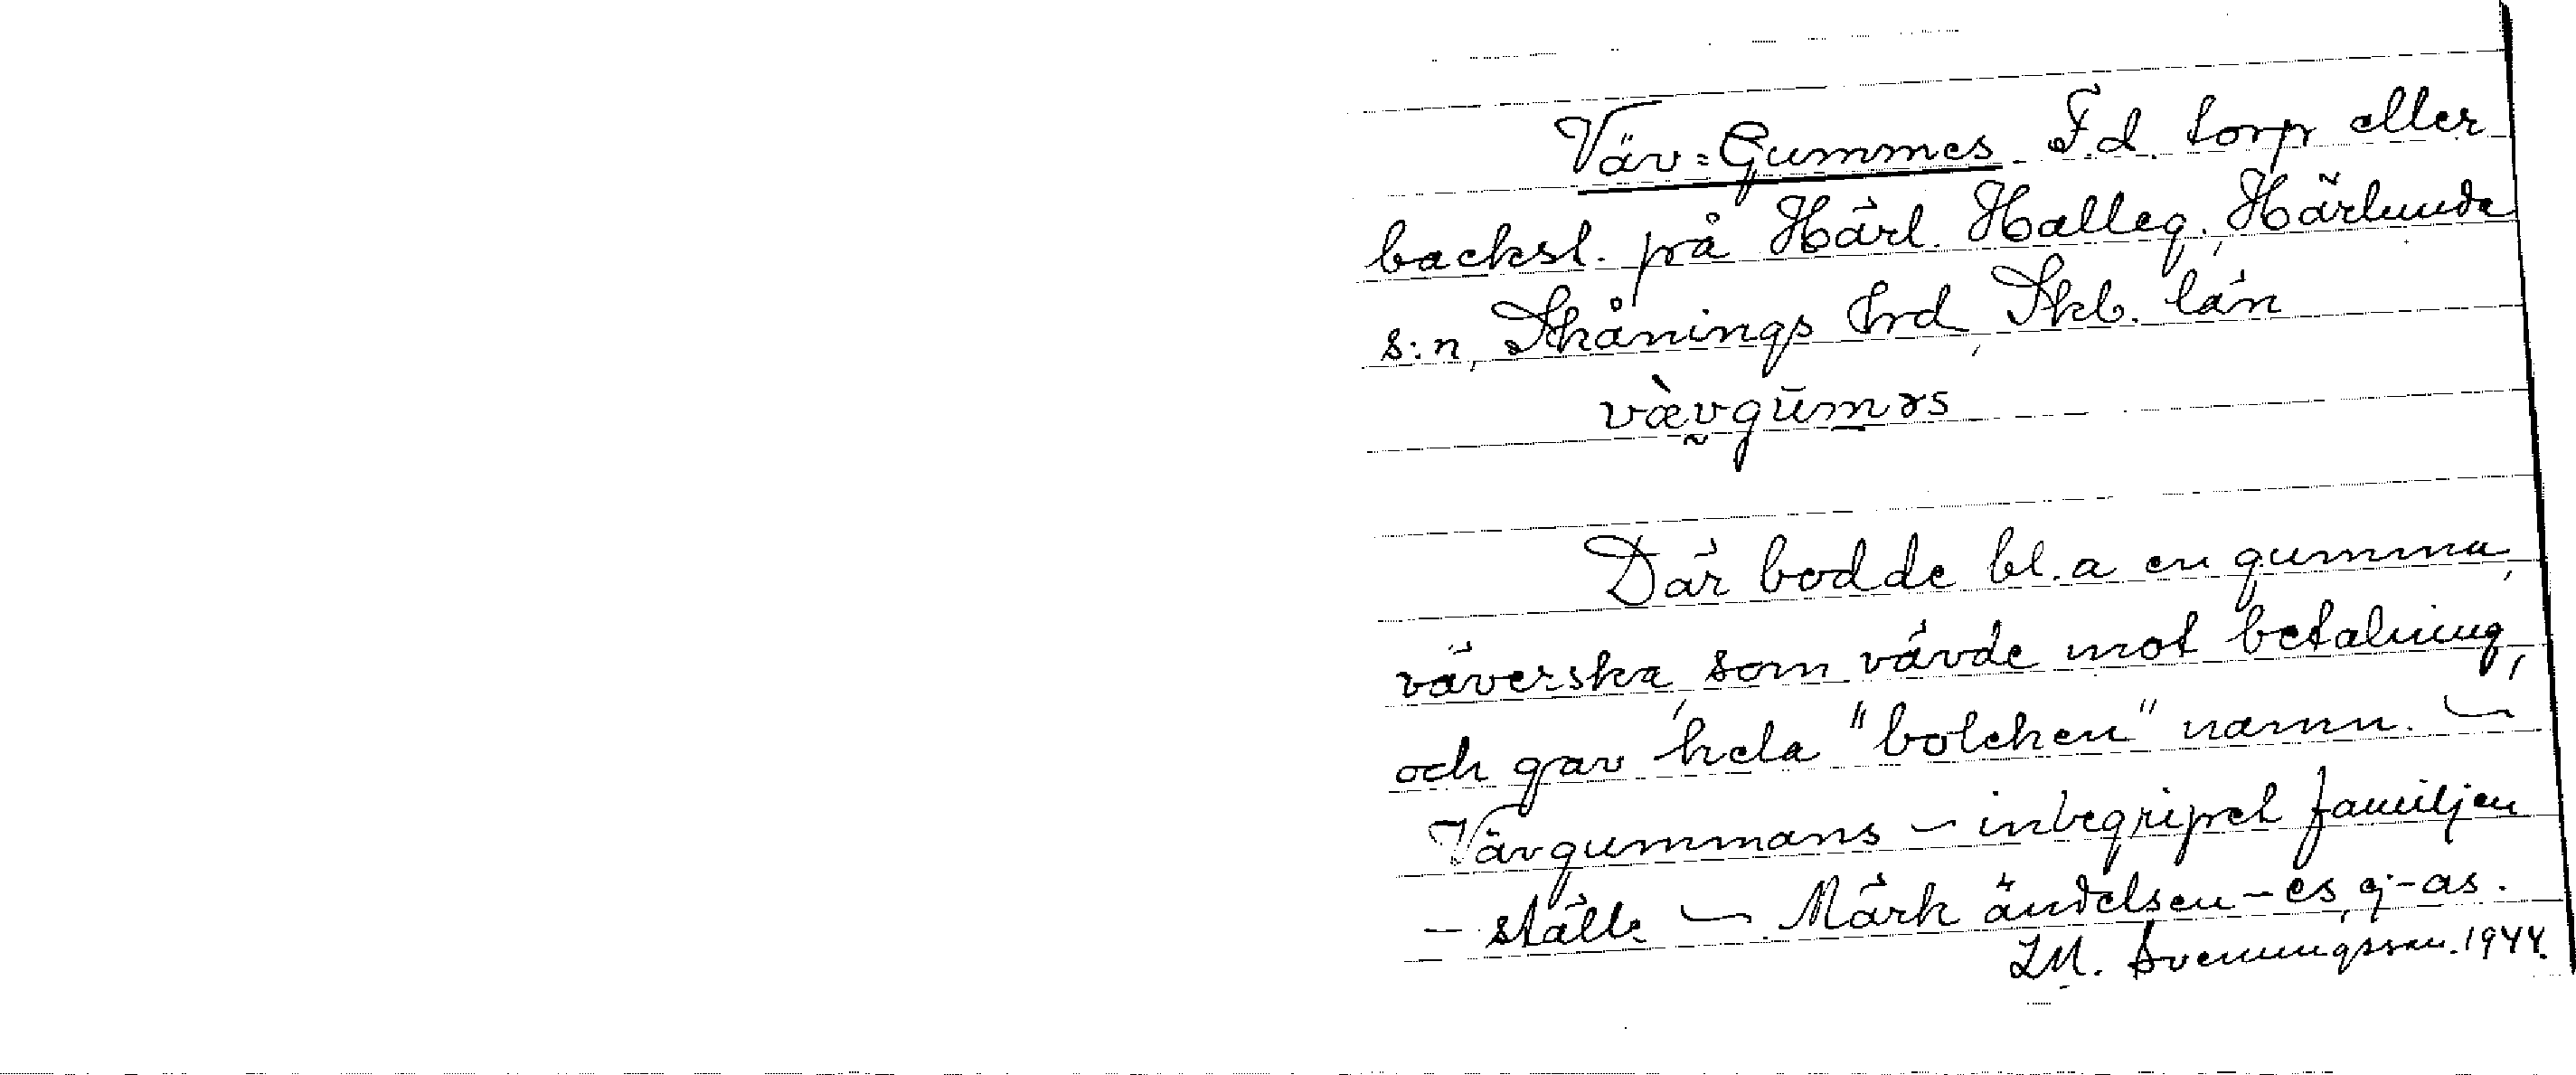 Väv-Gummes F.d. torp eller
backst. på Härl. Halleg., Härlunda
s:n, Skånings hrd, Skb. län
vævguməs
Där bodde bl. a en gumma,
väverska, som vävde mot betalning,
och gav hela "bolchen" namn. –
Vävgummans – inbegripet familjen
– ställe – Märk ändelsen -es, ej -as.
I.M. Svenningsson. 1944.